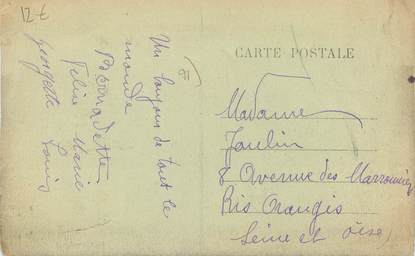 12 €
Un bonjour de tout le
monde
Bernadette
Féline Marie
Georgette Louis
CARTE POSTALE
Madame
Jaulin
8 Avenue des Marronniers
Ris Orangis
Seine et Oise